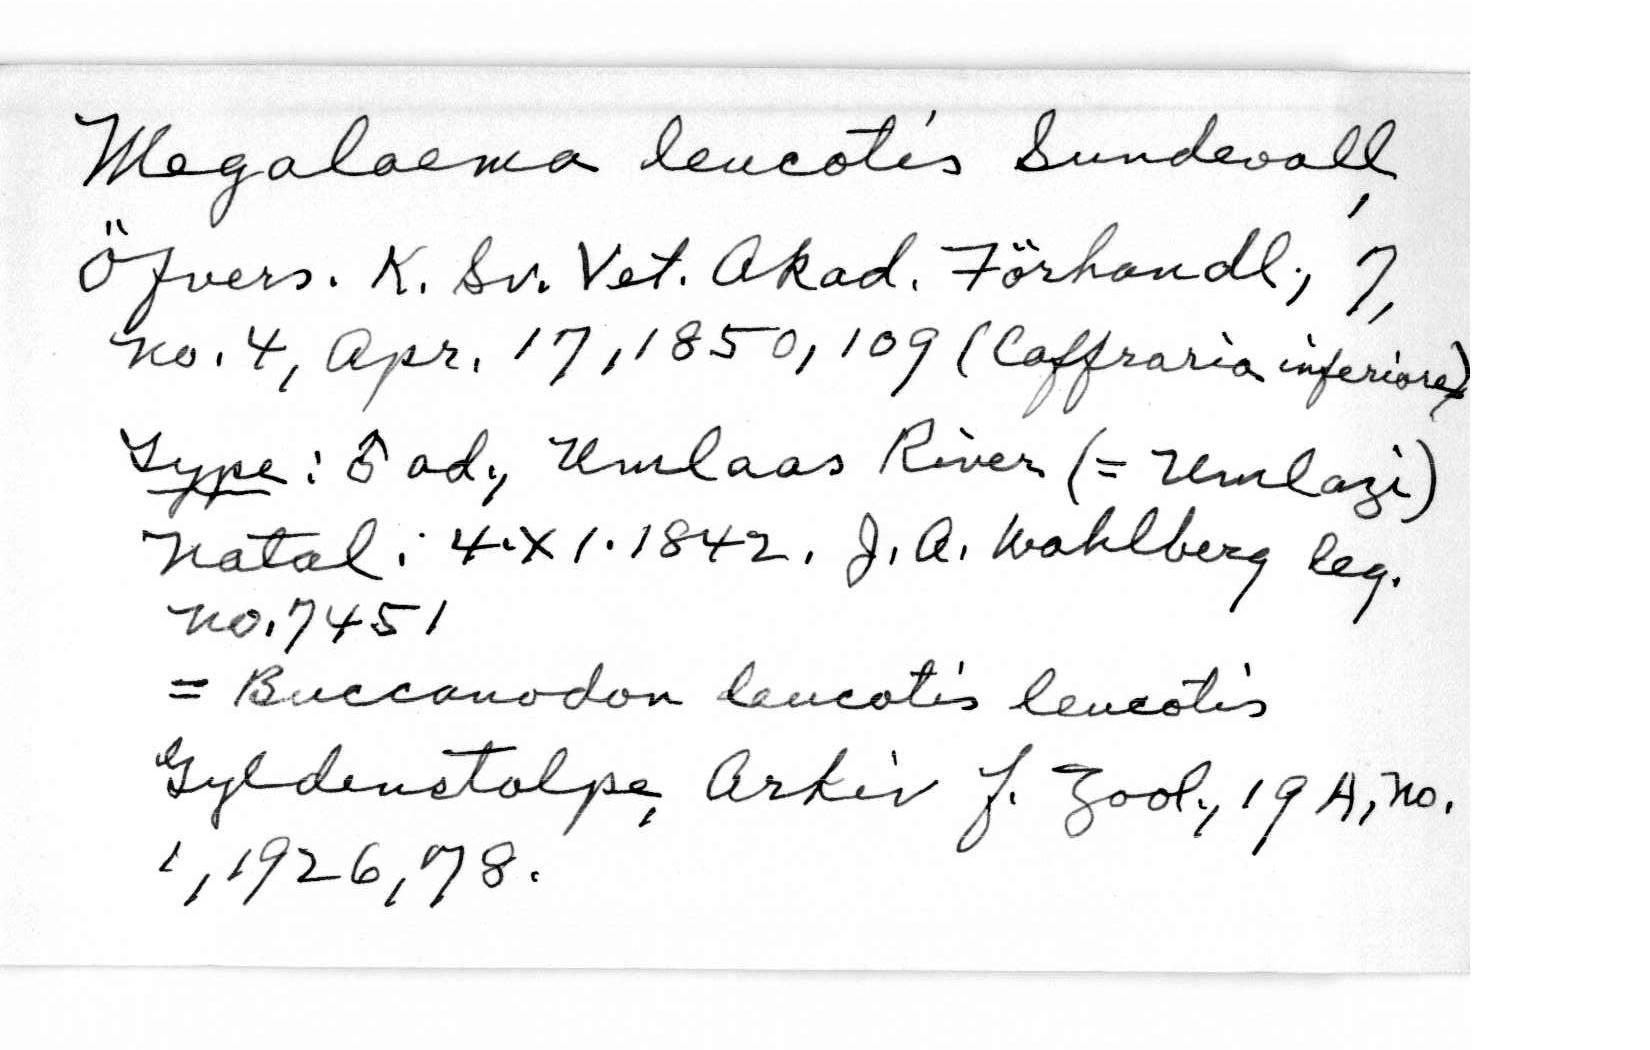 Megalaema leucotis Sundevall,
Öfvers. K. Sv. Vet. Akad. Förhandl., 7,
no. 4, Apr. 17, 1850, 109 (Caffraria inferiore)
Type: ♂ ad., Umlaas River (= Umlazi)
Natal: 4.XI.1842. J. A. Wahlberg leg.
no. 7451
= Buccanodon leucotis leucotis
Gyldenstolpe, Arkiv f. Zool., 19 A, no.
1, 1926, 78.